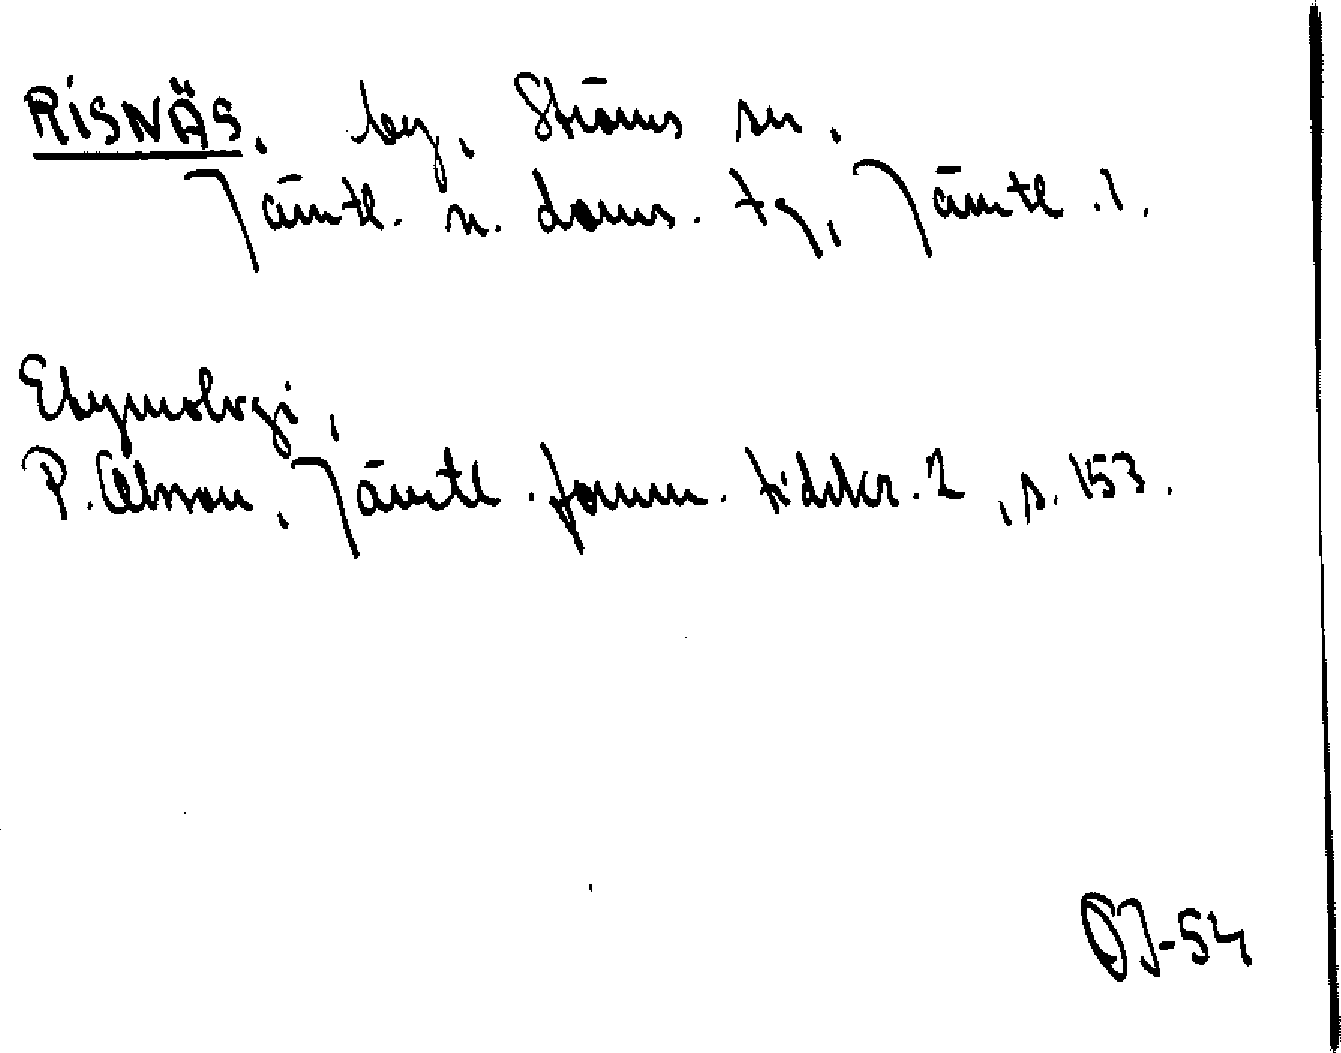 RISNÄS, by, Ströms sn,
Jämtl. n. doms. tg, Jämtl. l.
Etymologi,
P. Olsson, Jämtl. fornm. tidskr. 2, s. 153.
OJ-54